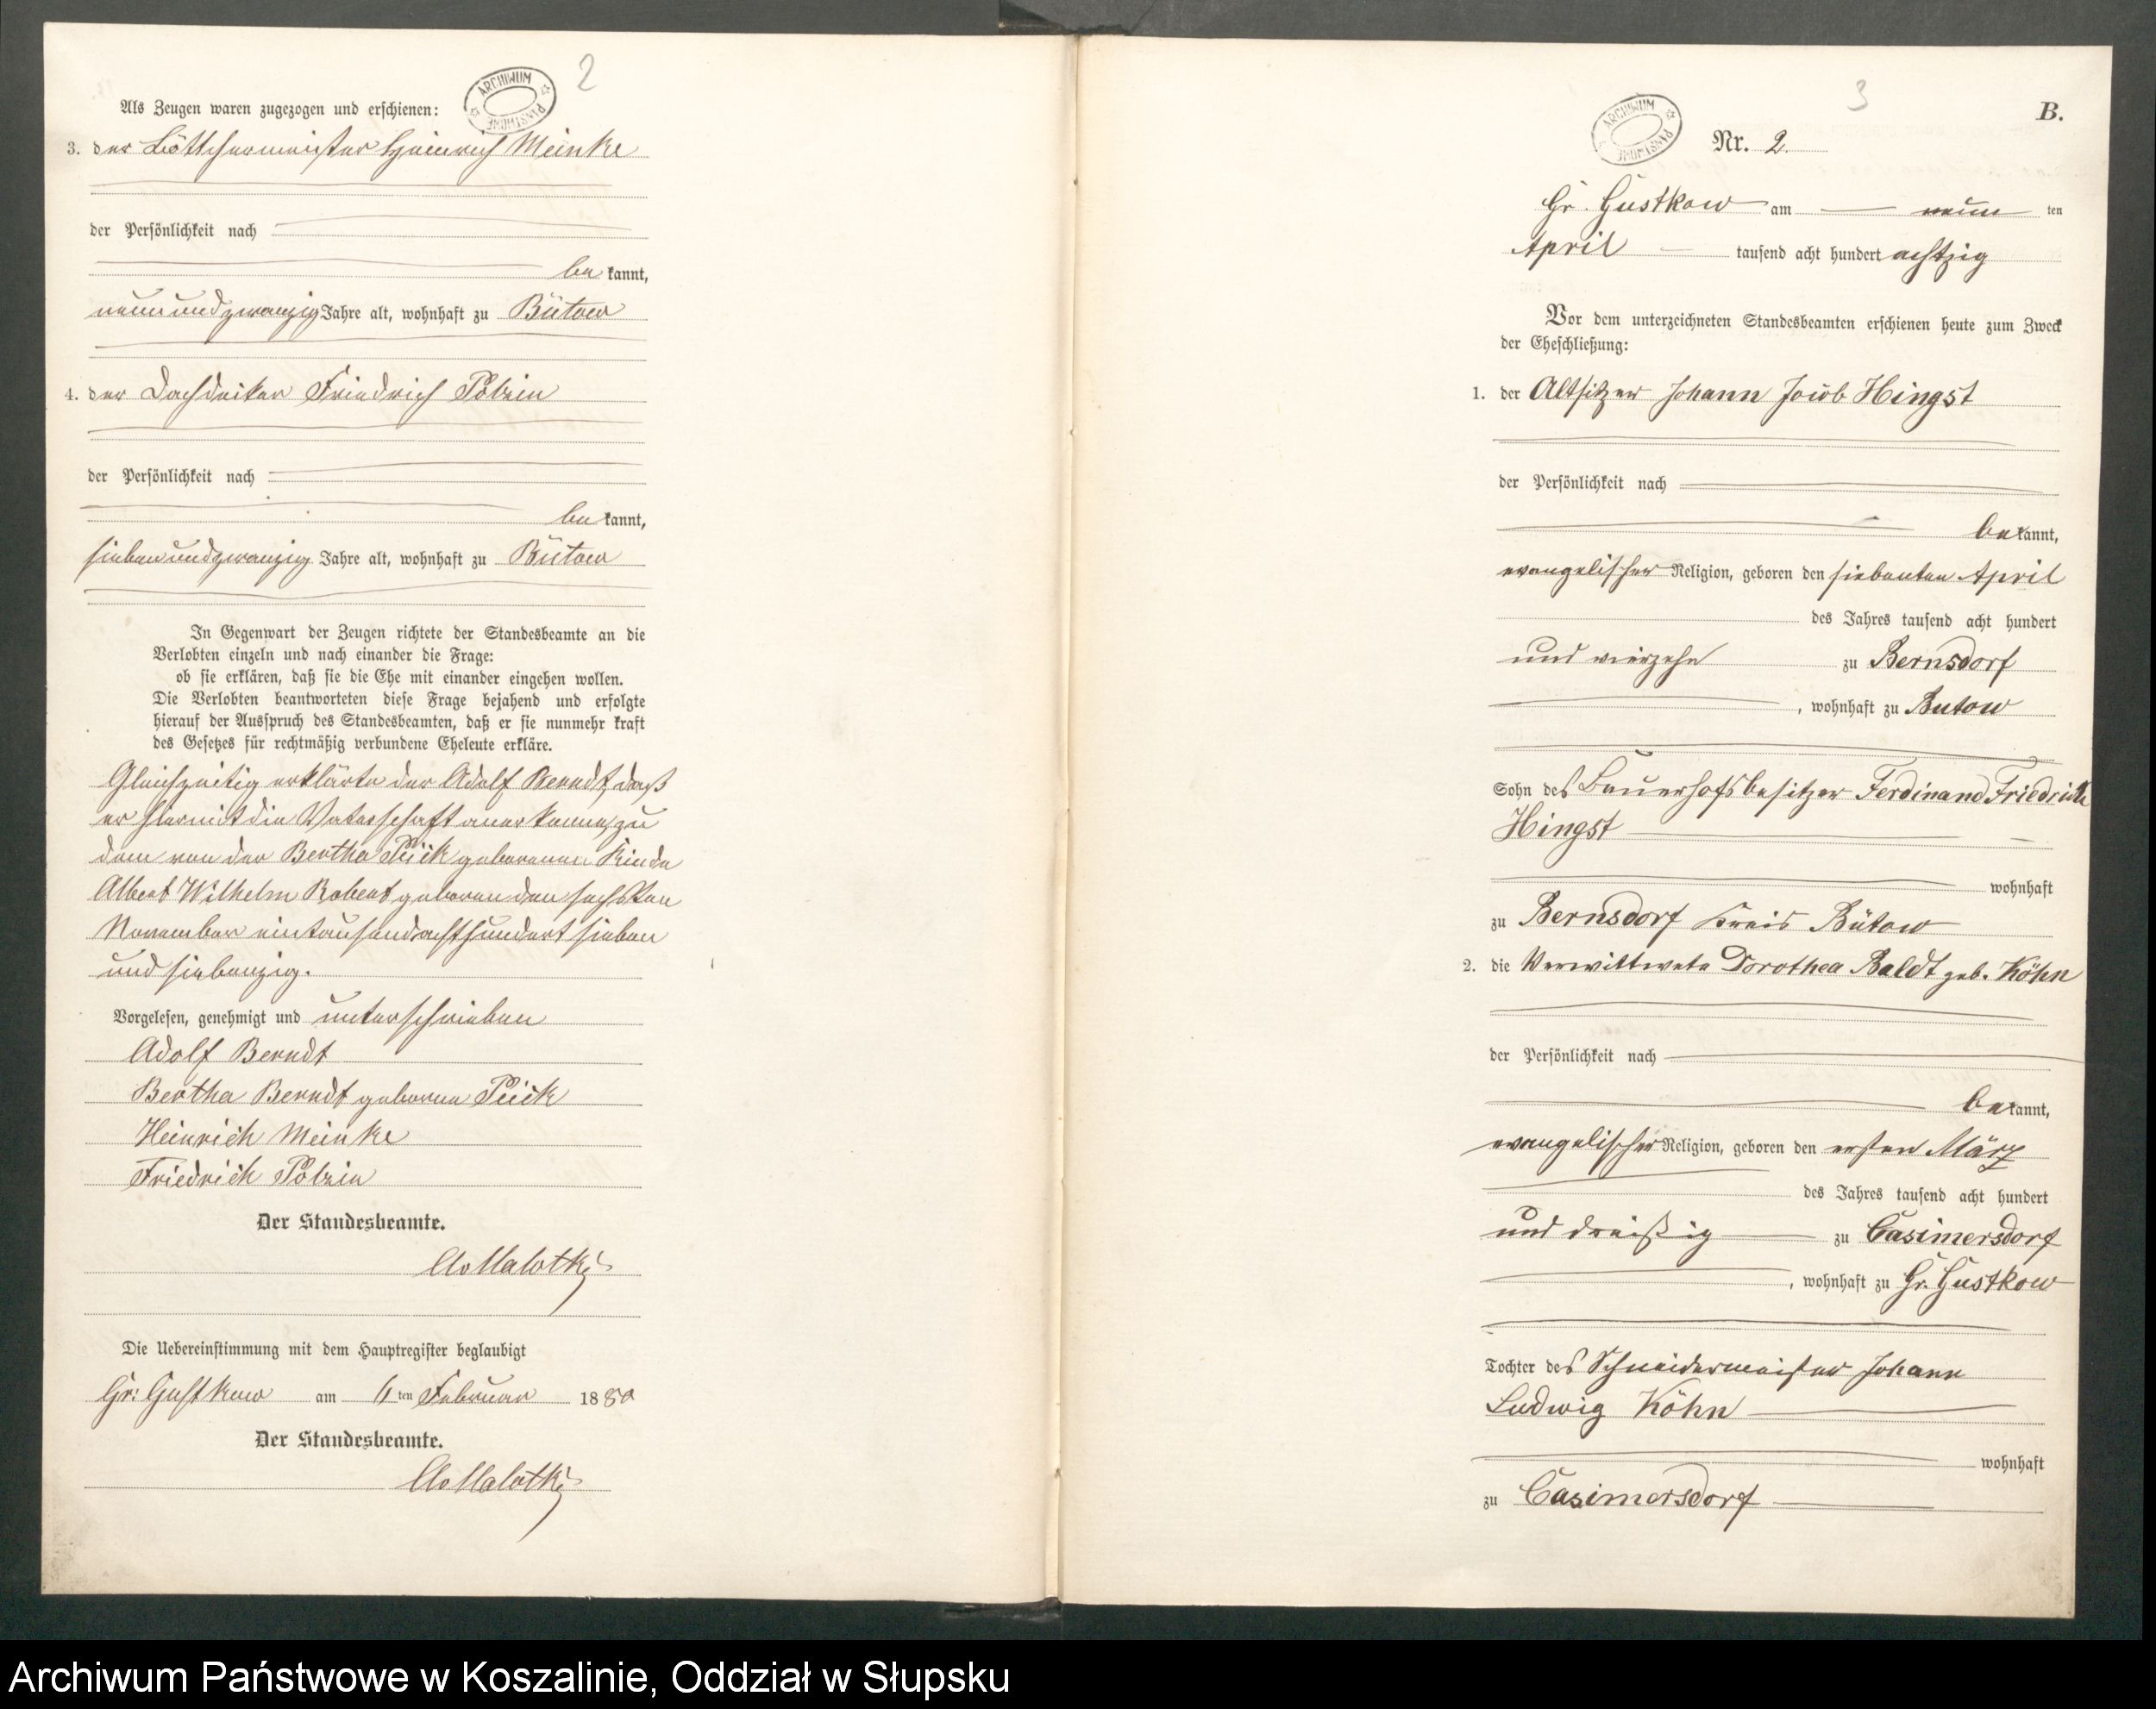 2
ARCHIWUM PAŃSTWOWE
Als Zeugen waren zugezogen und erschienen:
3. der Böttchermeister Heinrich Meinke
der Persönlichkeit nach
be kannt,
neunundzwanzig Jahre alt, wohnhaft zu Bütow
4. der Dachdecker Friedrich Polzin
der Persönlichkeit nach
be kannt,
siebenundzwanzig Jahre alt, wohnhaft zu Bütow
In Gegenwart der Zeugen richtete der Standesbeamte an die
Verlobten einzeln und nach einander die Frage:
ob sie erklären, daß sie die Ehe mit einander eingehen wollen.
Die Verlobten beantworteten diese Frage bejahend und erfolgte
hierauf der Ausspruch des Standesbeamten, daß er sie nunmehr kraft
des Gesetzes für rechtmäßig verbundene Eheleute erkläre.
Gleichzeitig erklärte der Adolf Berndt, daß
er hiermit die Vaterschaft anerkenne, zu
dem von der Bertha Pück geborenen Kinde
Albert Wilhelm Robert geboren den sechsten
November eintausendachthundert sieben
und siebenzig.
Vorgelesen, genehmigt und unterschrieben
Adolf Berndt
Bertha Berndt geborene Pück
Heinrich Meinke
Friedrich Polzin
Der Standesbeamte.
Malotki
Die Uebereinstimmung mit dem Hauptregister beglaubigt
Gr: Gustkow am ten Februar 1880
Der Standesbeamte.
Malotki
3
ARCHIWUM PAŃSTWOWE
B.
Nr. 2.
Gr. Gustkow am neun ten
April tausend acht hundert achtzig
Vor dem unterzeichneten Standesbeamten erschienen heute zum Zweck
der Eheschließung:
1. der Altsitzer Johann Jacob Hingst
der Persönlichkeit nach
be kannt,
evangelischer Religion, geboren den siebenten April
des Jahres tausend acht hundert
und vierzehn zu Bernsdorf
, wohnhaft zu Butow
Sohn des Bauerhofsbesitzer Ferdinand Friedrich
Hingst
wohnhaft
zu Bernsdorf Kreis Bütow
2. die Verwittwete Dorothea Baldt geb. Köhn
der Persönlichkeit nach
be kannt,
evangelischer Religion, geboren den ersten März
des Jahres tausend acht hundert
und dreißig zu Casimersdorf
, wohnhaft zu Gr. Gustkow
Tochter des Schneidermeister Johann
Ludwig Köhn
wohnhaft
zu Casimersdorf
Archiwum Państwowe w Koszalinie, Oddział w Słupsku